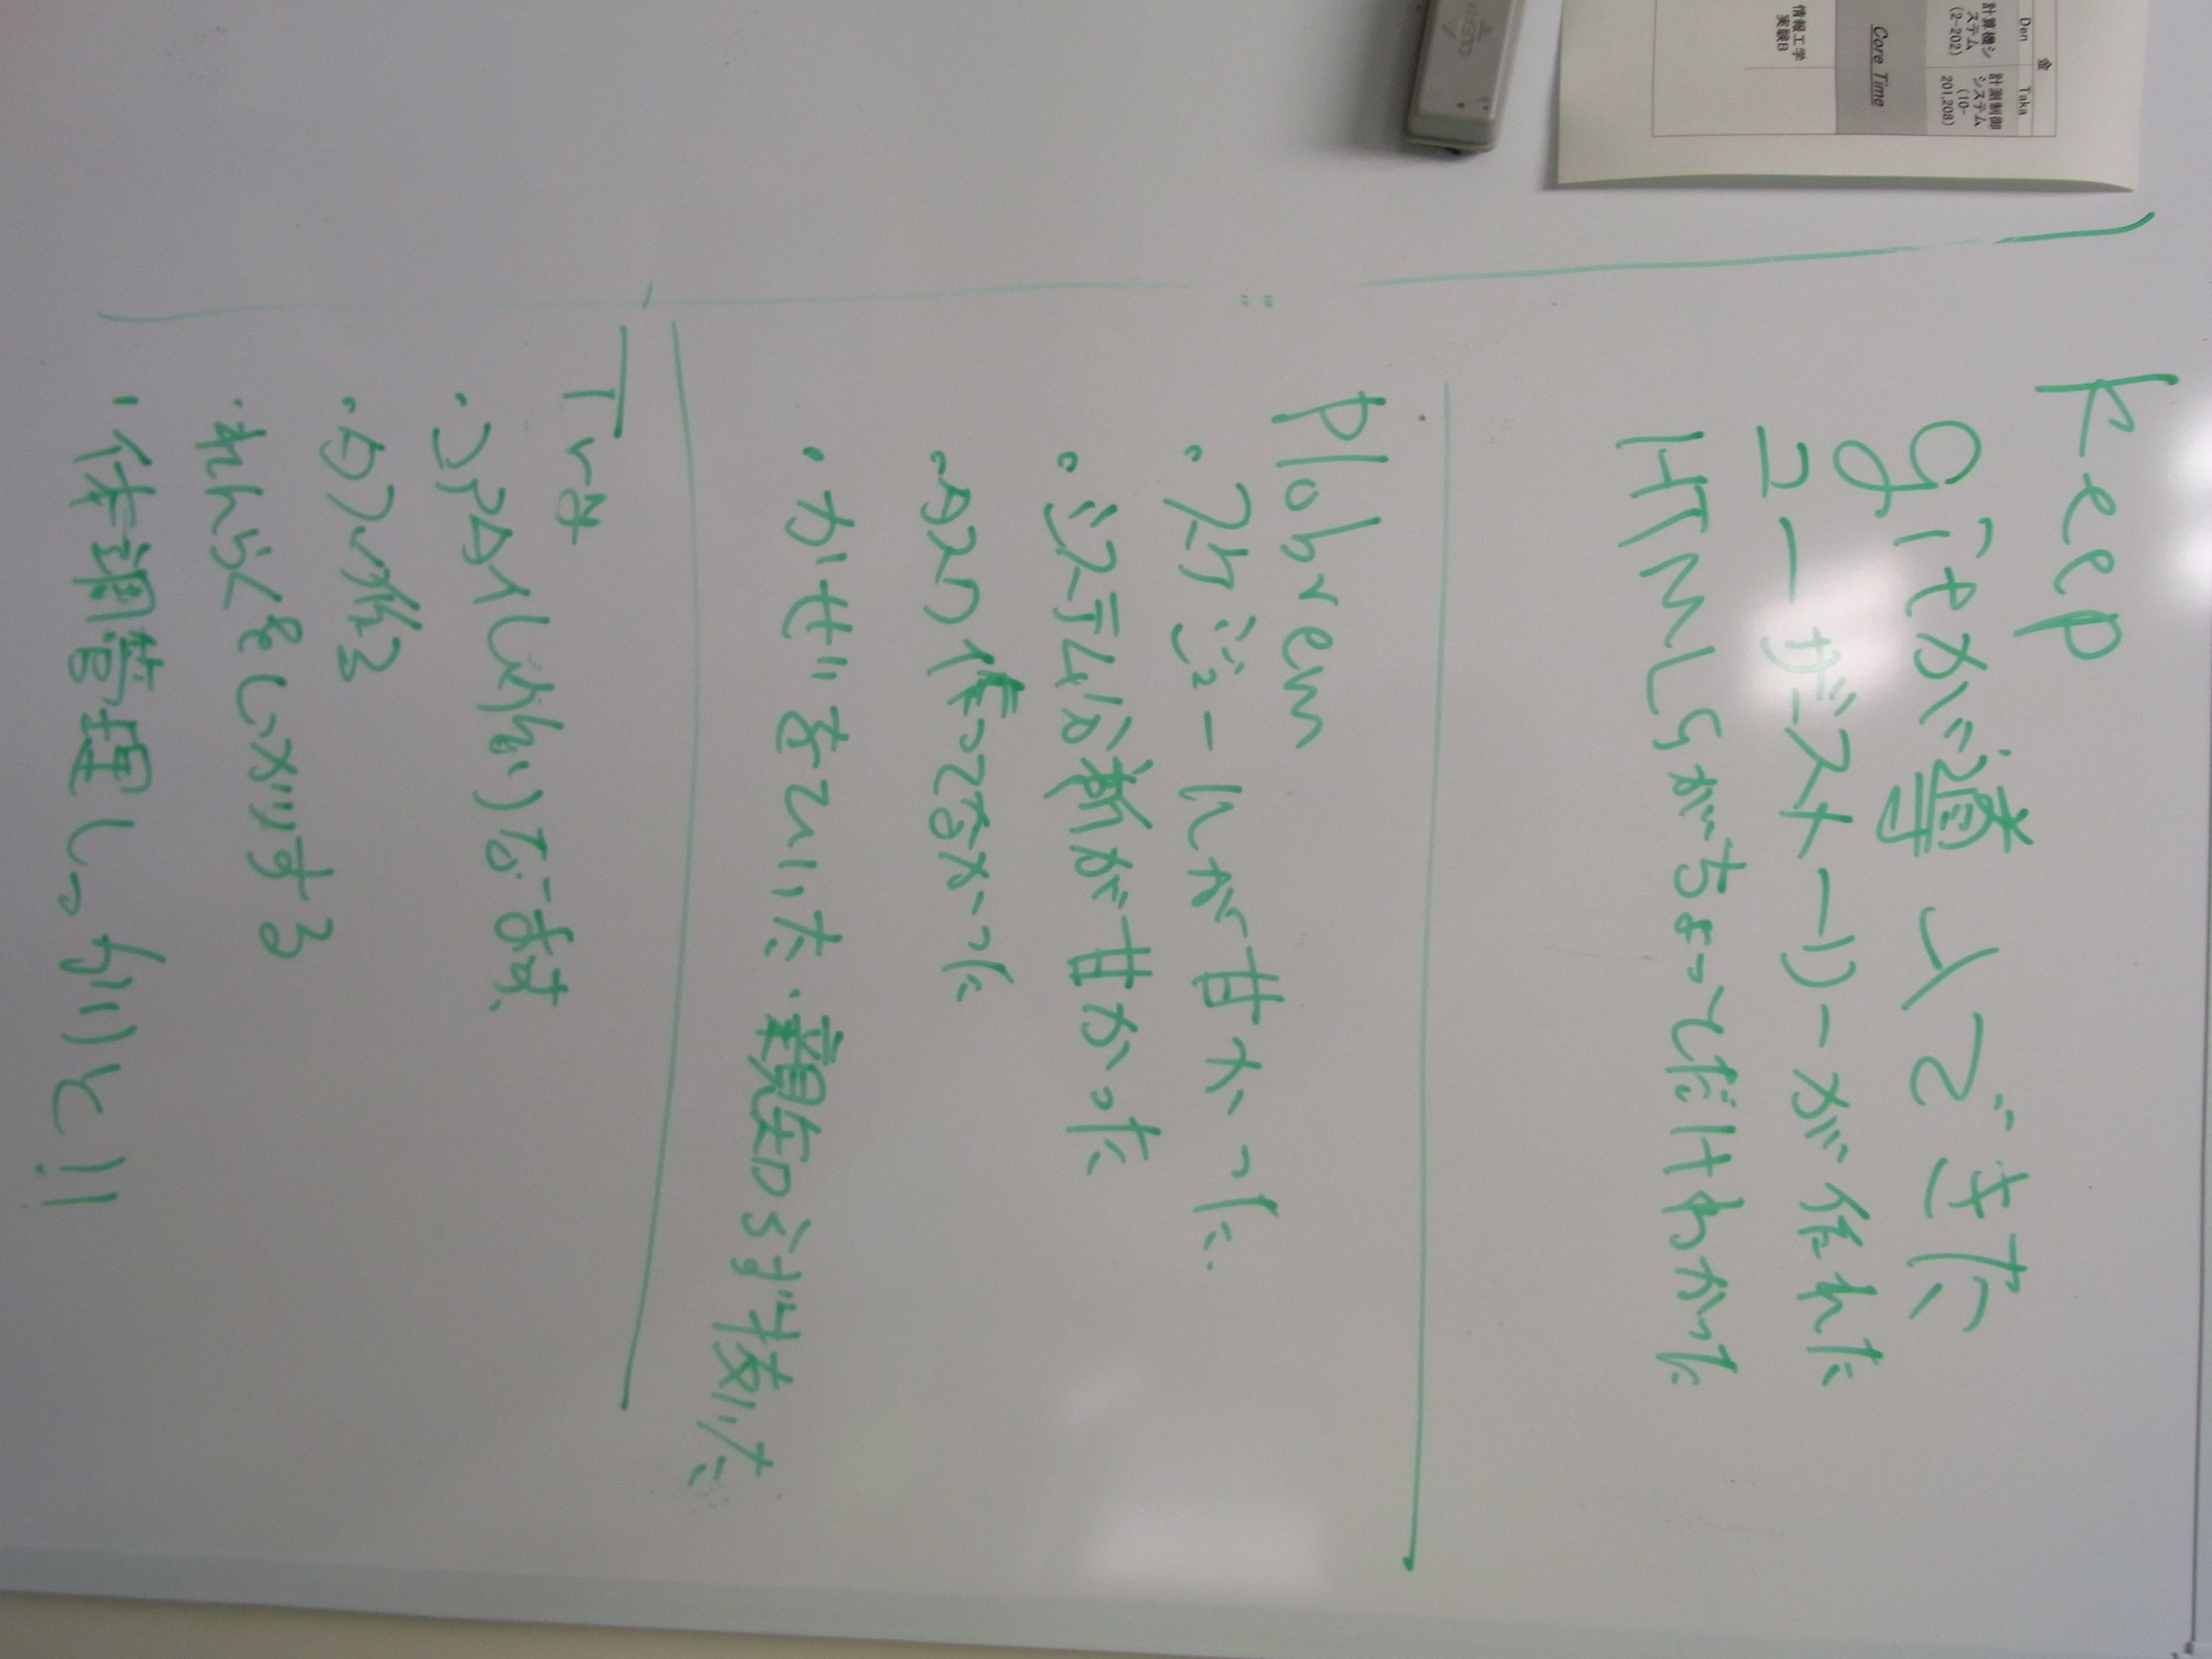 金
Den Taka
計算機シ
ステム
(2-202)
計測制御
システム
(10-
201,208)
Core Time
情報工学
実験B
keep
gitが導入できた
ユーザーストーリーが作れた
HTML5がちょっとだけわかった
Plobrem
・スケジュールが甘かった.
・システム分断が甘かった
・タスク作ってなかった
・かぜをひいた・親知らず抜いた
Try
・コアタイ
・タスク作る
・れんらくをしっかりする
・体調管理しっかりと!!